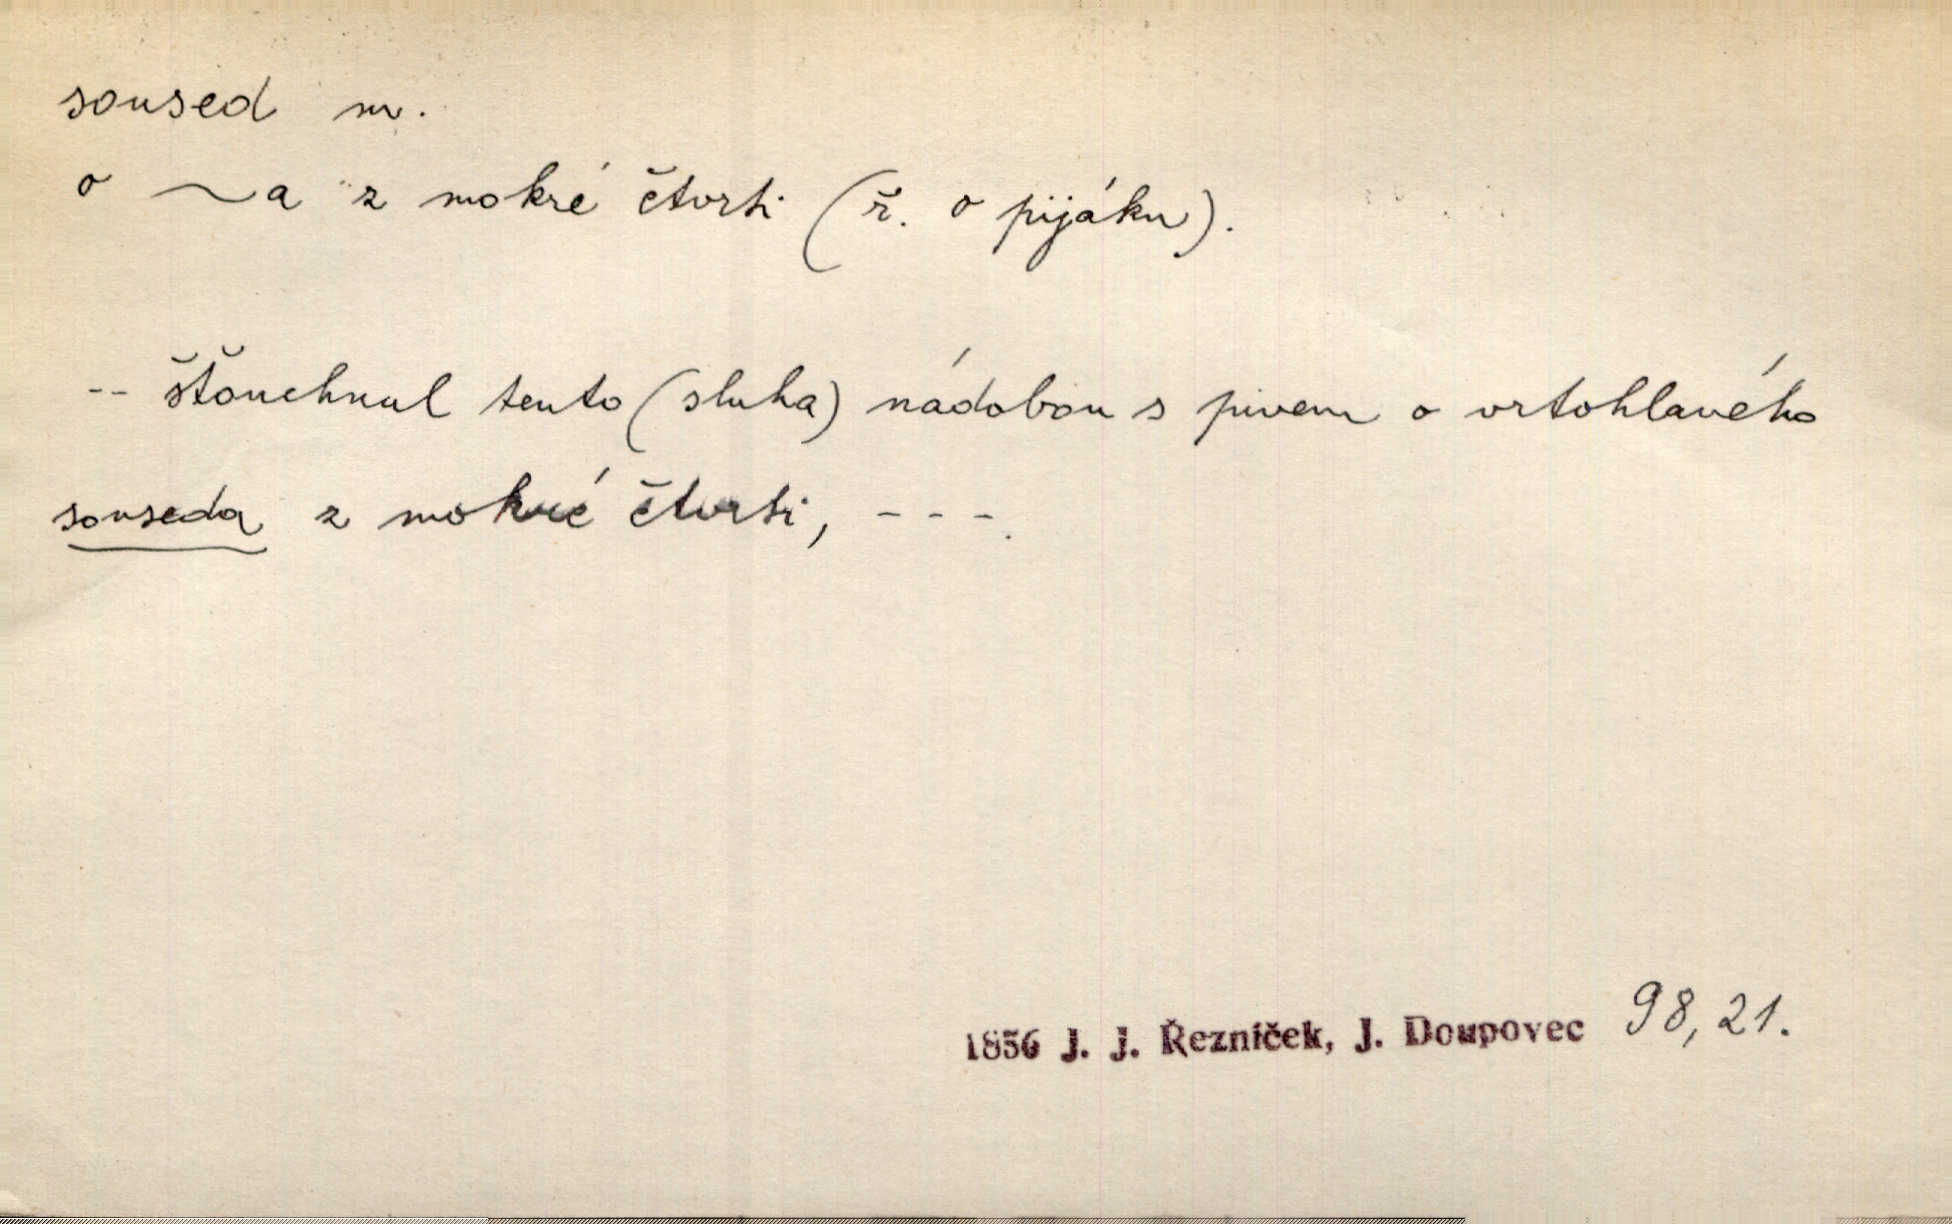 soused m.
o ~a z mokré čtvrti (ř. o pijáku).
-- šťouchnul tento (sluha) nádobou s pivem o vrtohlavého
souseda z mokré čtvrti, ---.
1856 J. J. Řezníček, J. Doupovec 98, 21.